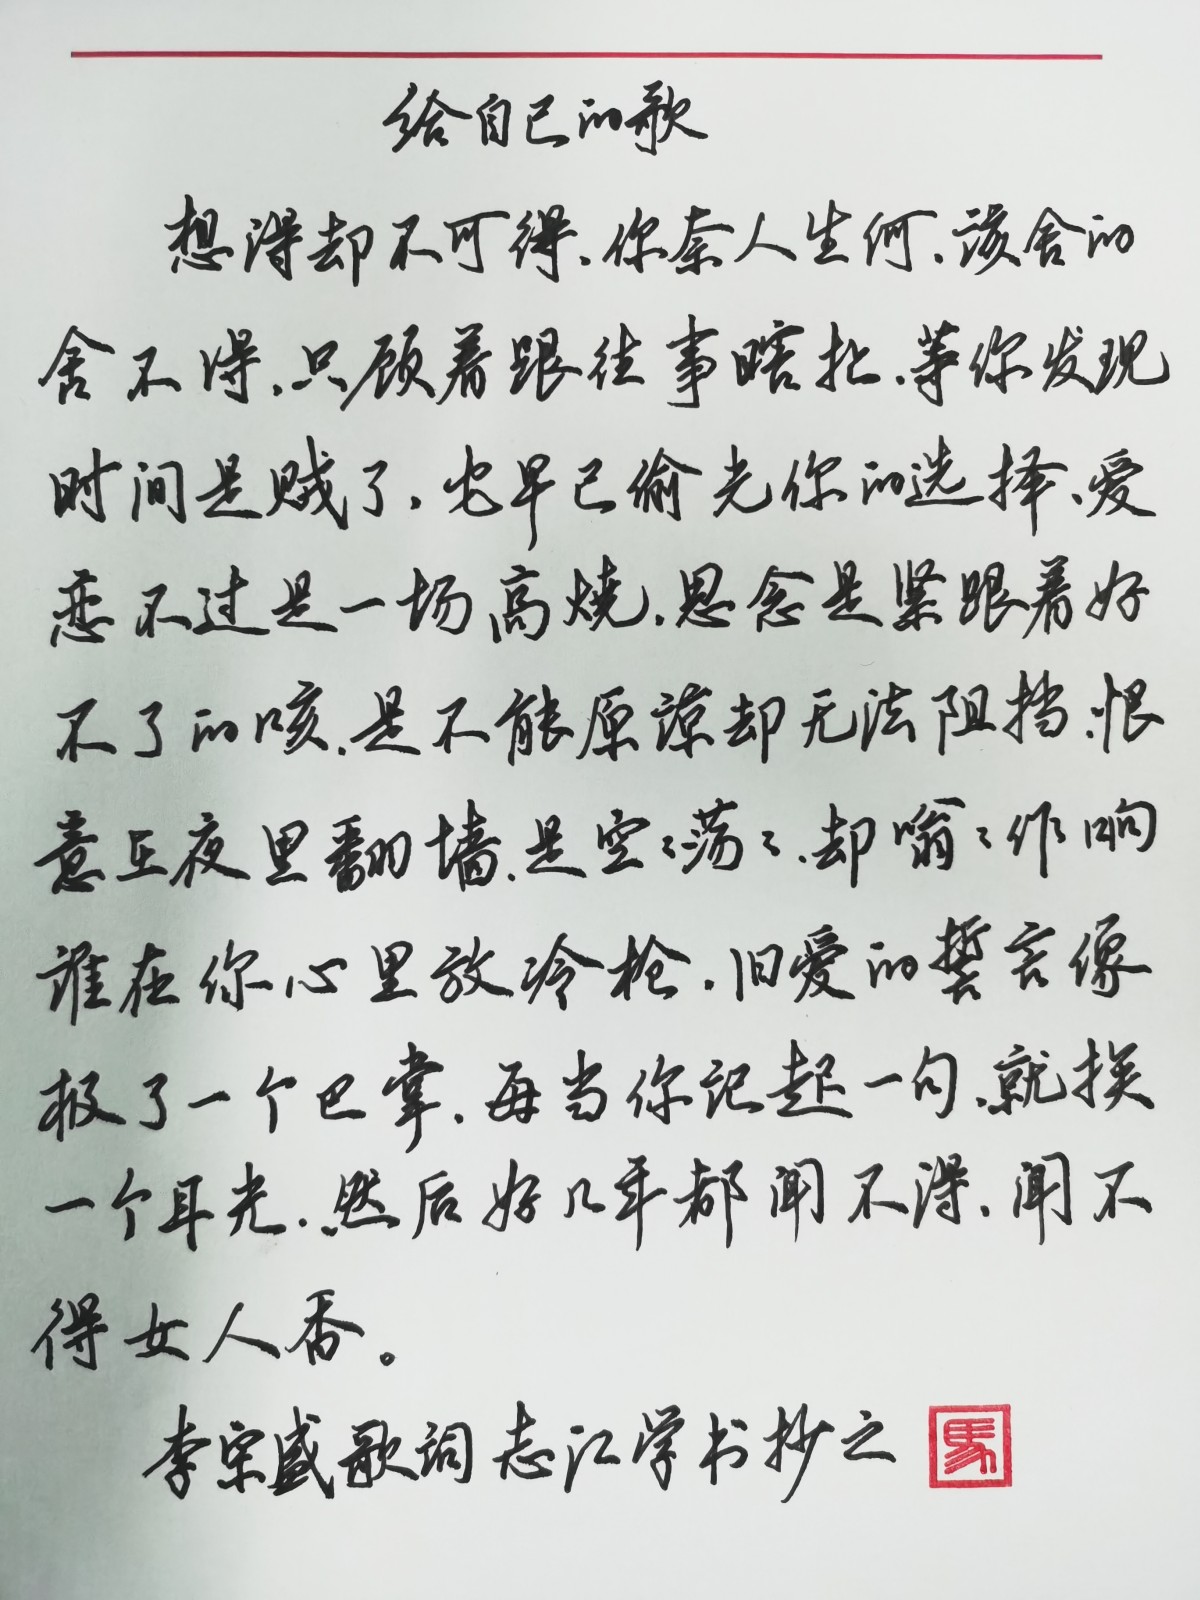 给自己的歌
想得却不可得、你奈人生何、该舍的
舍不得、只顾着跟往事瞎扯、等你发现
时间是贼了、它早已偷光你的选择、爱
恋不过是一场高烧、思念是紧跟着好
不了的咳、是不能原谅却无法阻挡、恨
意在夜里翻墙、是空々荡々、却嗡々作响
谁在你心里放冷枪、旧爱的誓言像
极了一个巴掌、每当你记起一句、就挨
一个耳光、然后好几年都闻不得、闻不
得女人香。
李宗盛歌词 志江学书抄之 馬